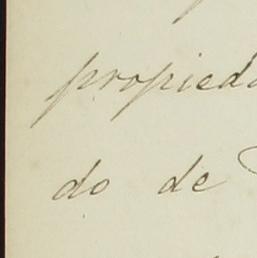 propieda
do de